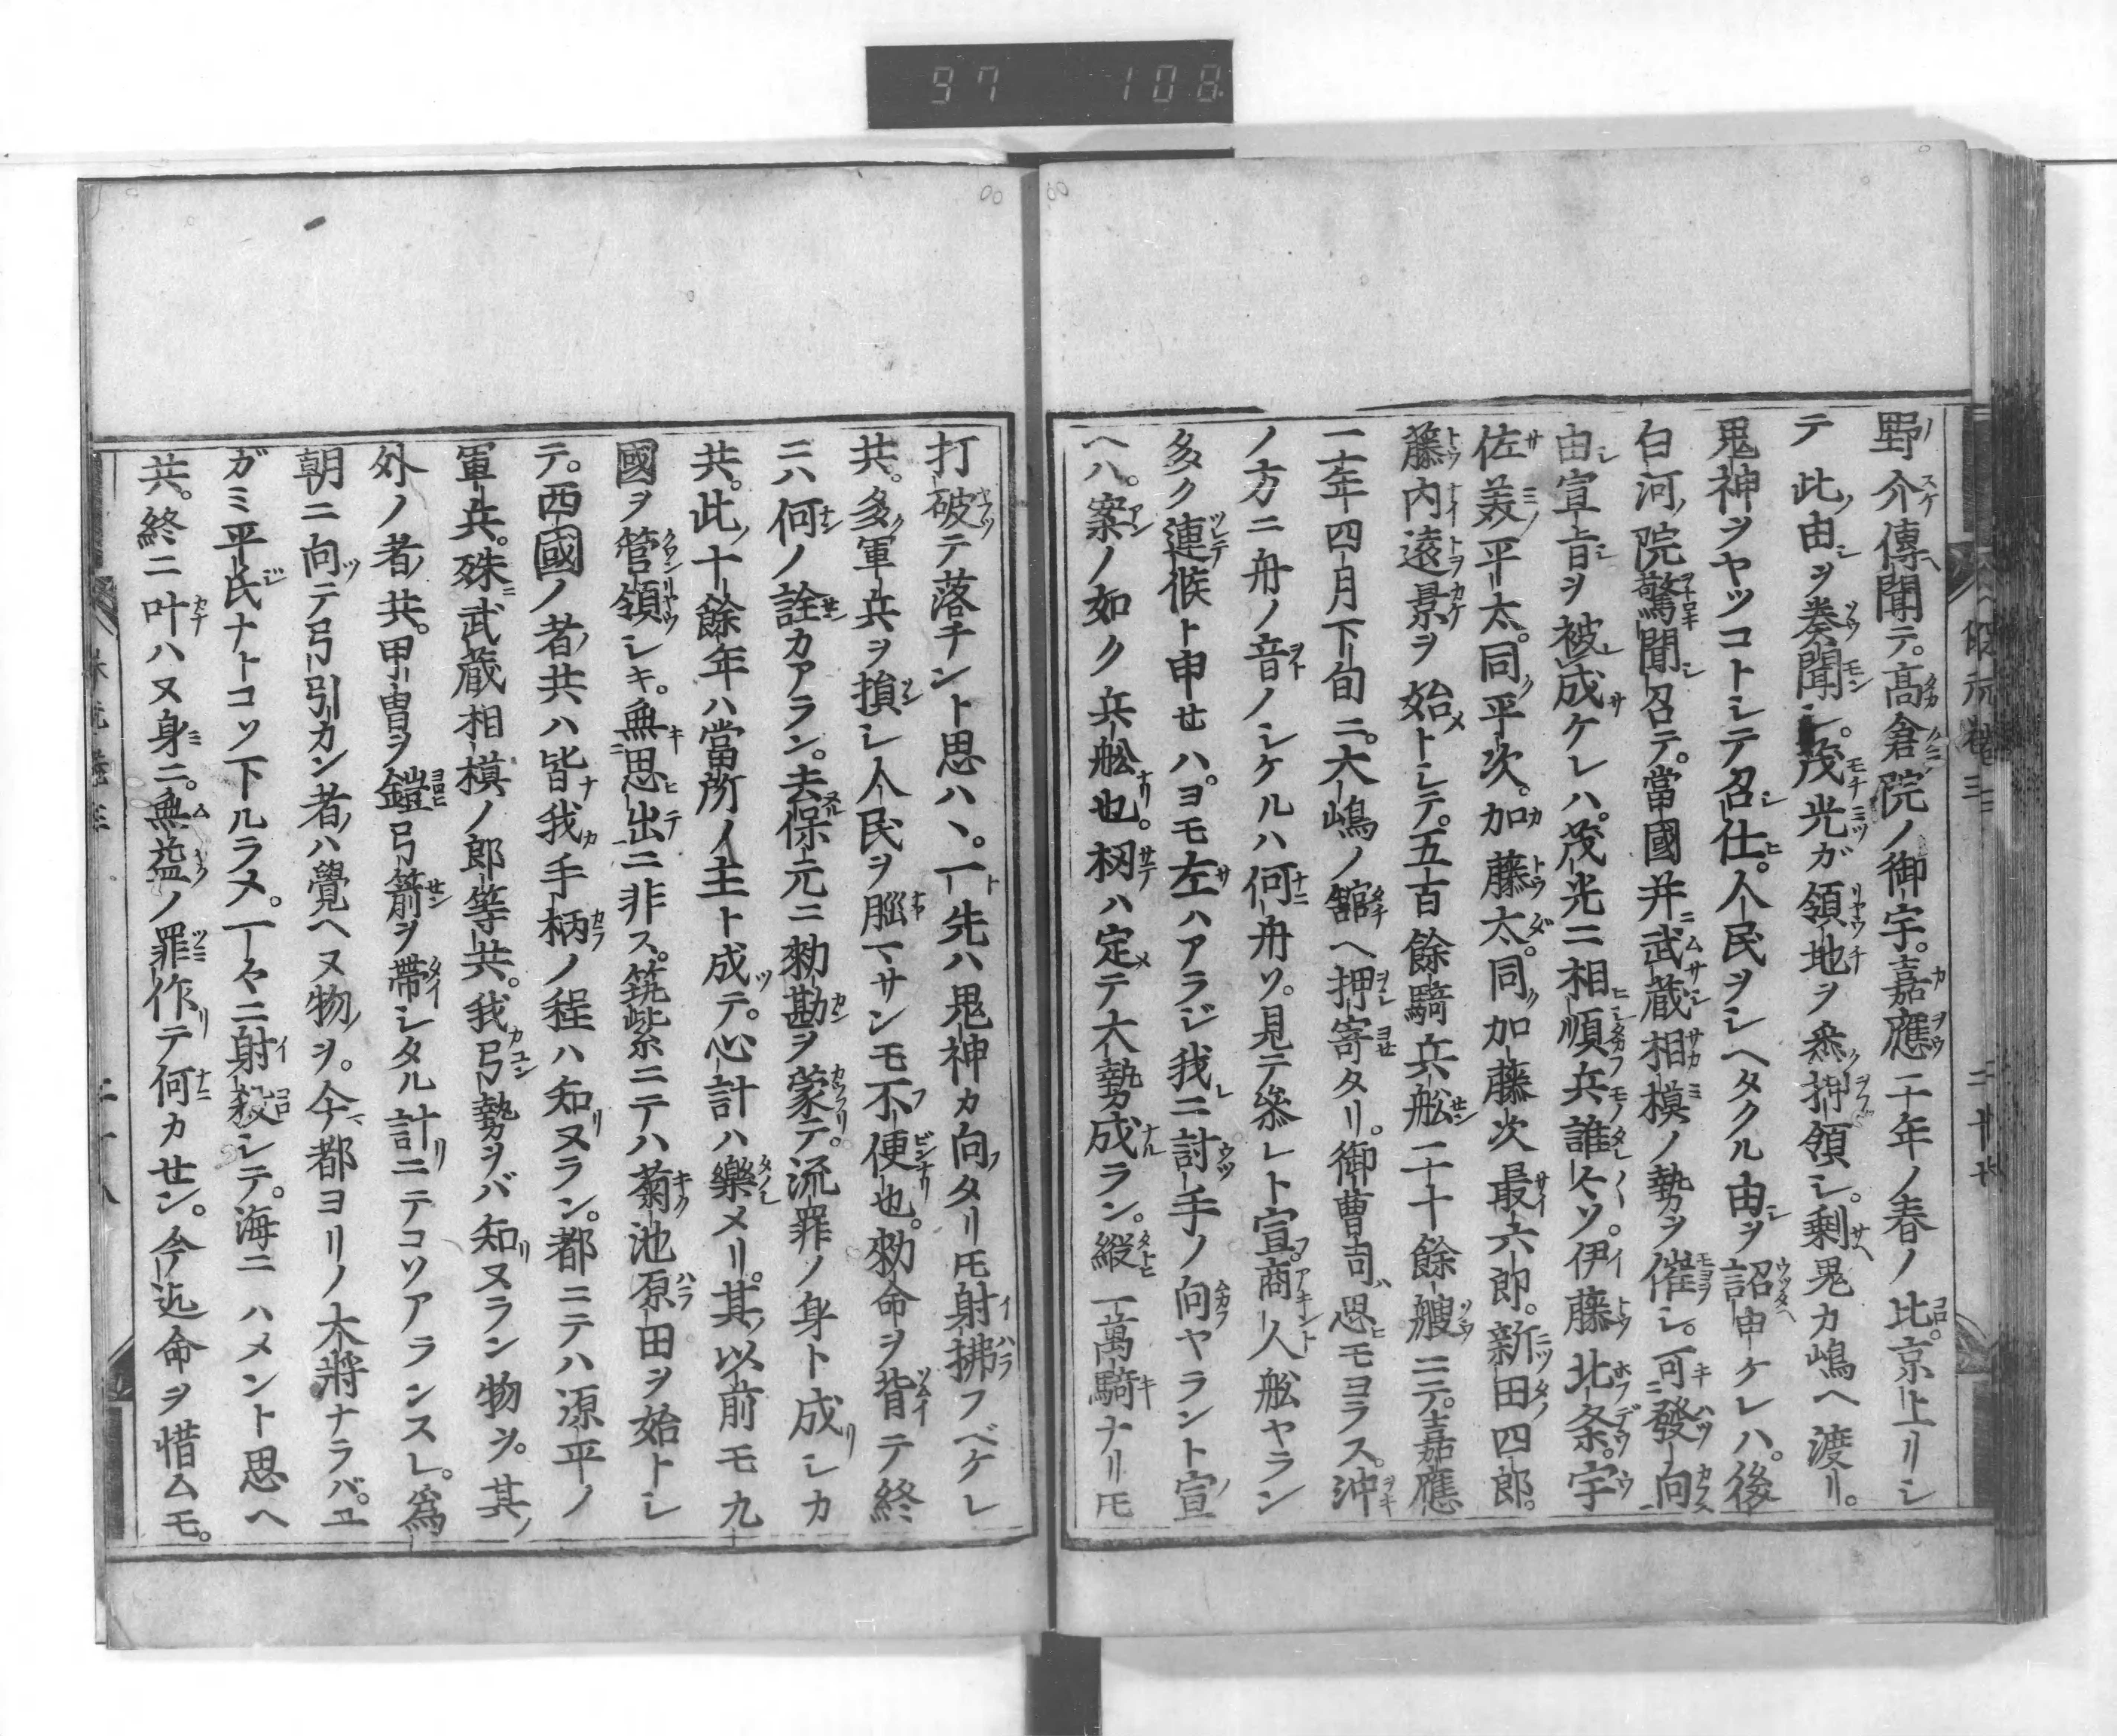 97 108
野介傳聞テ。髙倉院ノ御宇。嘉應二年ノ春ノ比。京上リシ
テ此由ヲ奏聞シ。茂光ガ領地ヲ悉押領シ。剰鬼カ嶋ヘ渡リ。
鬼神ヲヤツコトシテ召仕。人民ヲシヘタクル由ヲ詔申ケレハ。後
白河院驚聞召テ。當國并武蔵相模ノ勢ヲ催シ。可發向
由宣旨ヲ被成ケレハ。茂光ニ相順兵誰々ソ。伊藤北条。宇
佐美平太。同平次。加藤太。同加藤次最六郎。新田四郎。
藤内遠景ヲ始トシテ。五百餘騎兵舩二十餘艘ニテ。嘉應
二年四月下旬ニ。大嶋ノ舘ヘ押寄タリ。御曹司思モヨラス。沖
ノ方ニ舟ノ音ノシケルハ何舟ソ。見テ參レト宣。商人舩ヤラン
多ク連候ト申セハ。ヨモ左ハアラジ我ニ討手ノ向ヤラント宣
ヘハ。案ノ如ク兵舩也。扨ハ定テ大勢成ラン。縱一萬騎ナリ𪜈
打破テ落チント思ハヽ。一先ハ鬼神カ向タリ𪜈射拂フベケレ
共。多軍兵ヲ損シ人民ヲ𫆓マサンモ不便也。勅命ヲ背テ終
ニハ何ノ詮カアラン。去保元ニ勅勘ヲ蒙テ。流罪ノ身ト成シカ
共。此十餘年ハ當所ノ主ト成テ。心計ハ樂メリ。其以前モ九
國ヲ管領シキ。無思出ニ非ス。筑紫ニテハ菊池原田ヲ始トシ
テ。西國ノ者共ハ皆我手柄ノ程ハ知ヌラン。都ニテハ源平ノ
軍兵。殊武蔵相模ノ郎等共。我弓勢ヲバ知ヌラン物ヲ。其
外ノ者共。甲冑ヲ鎧弓箭ヲ帶シタル計ニテコソアランスレ。爲
朝ニ向テ弓引カン者ハ覺ヘヌ物ヲ。今都ヨリノ大將ナラバ。ユ
ガミ平氏ナトコソ下ルラメ。一々ニ射殺シテ。海ニハメント思ヘ
共。終ニ叶ハヌ身ニ。無益ノ罪作テ何カセン。今迄命ヲ惜ムモ。